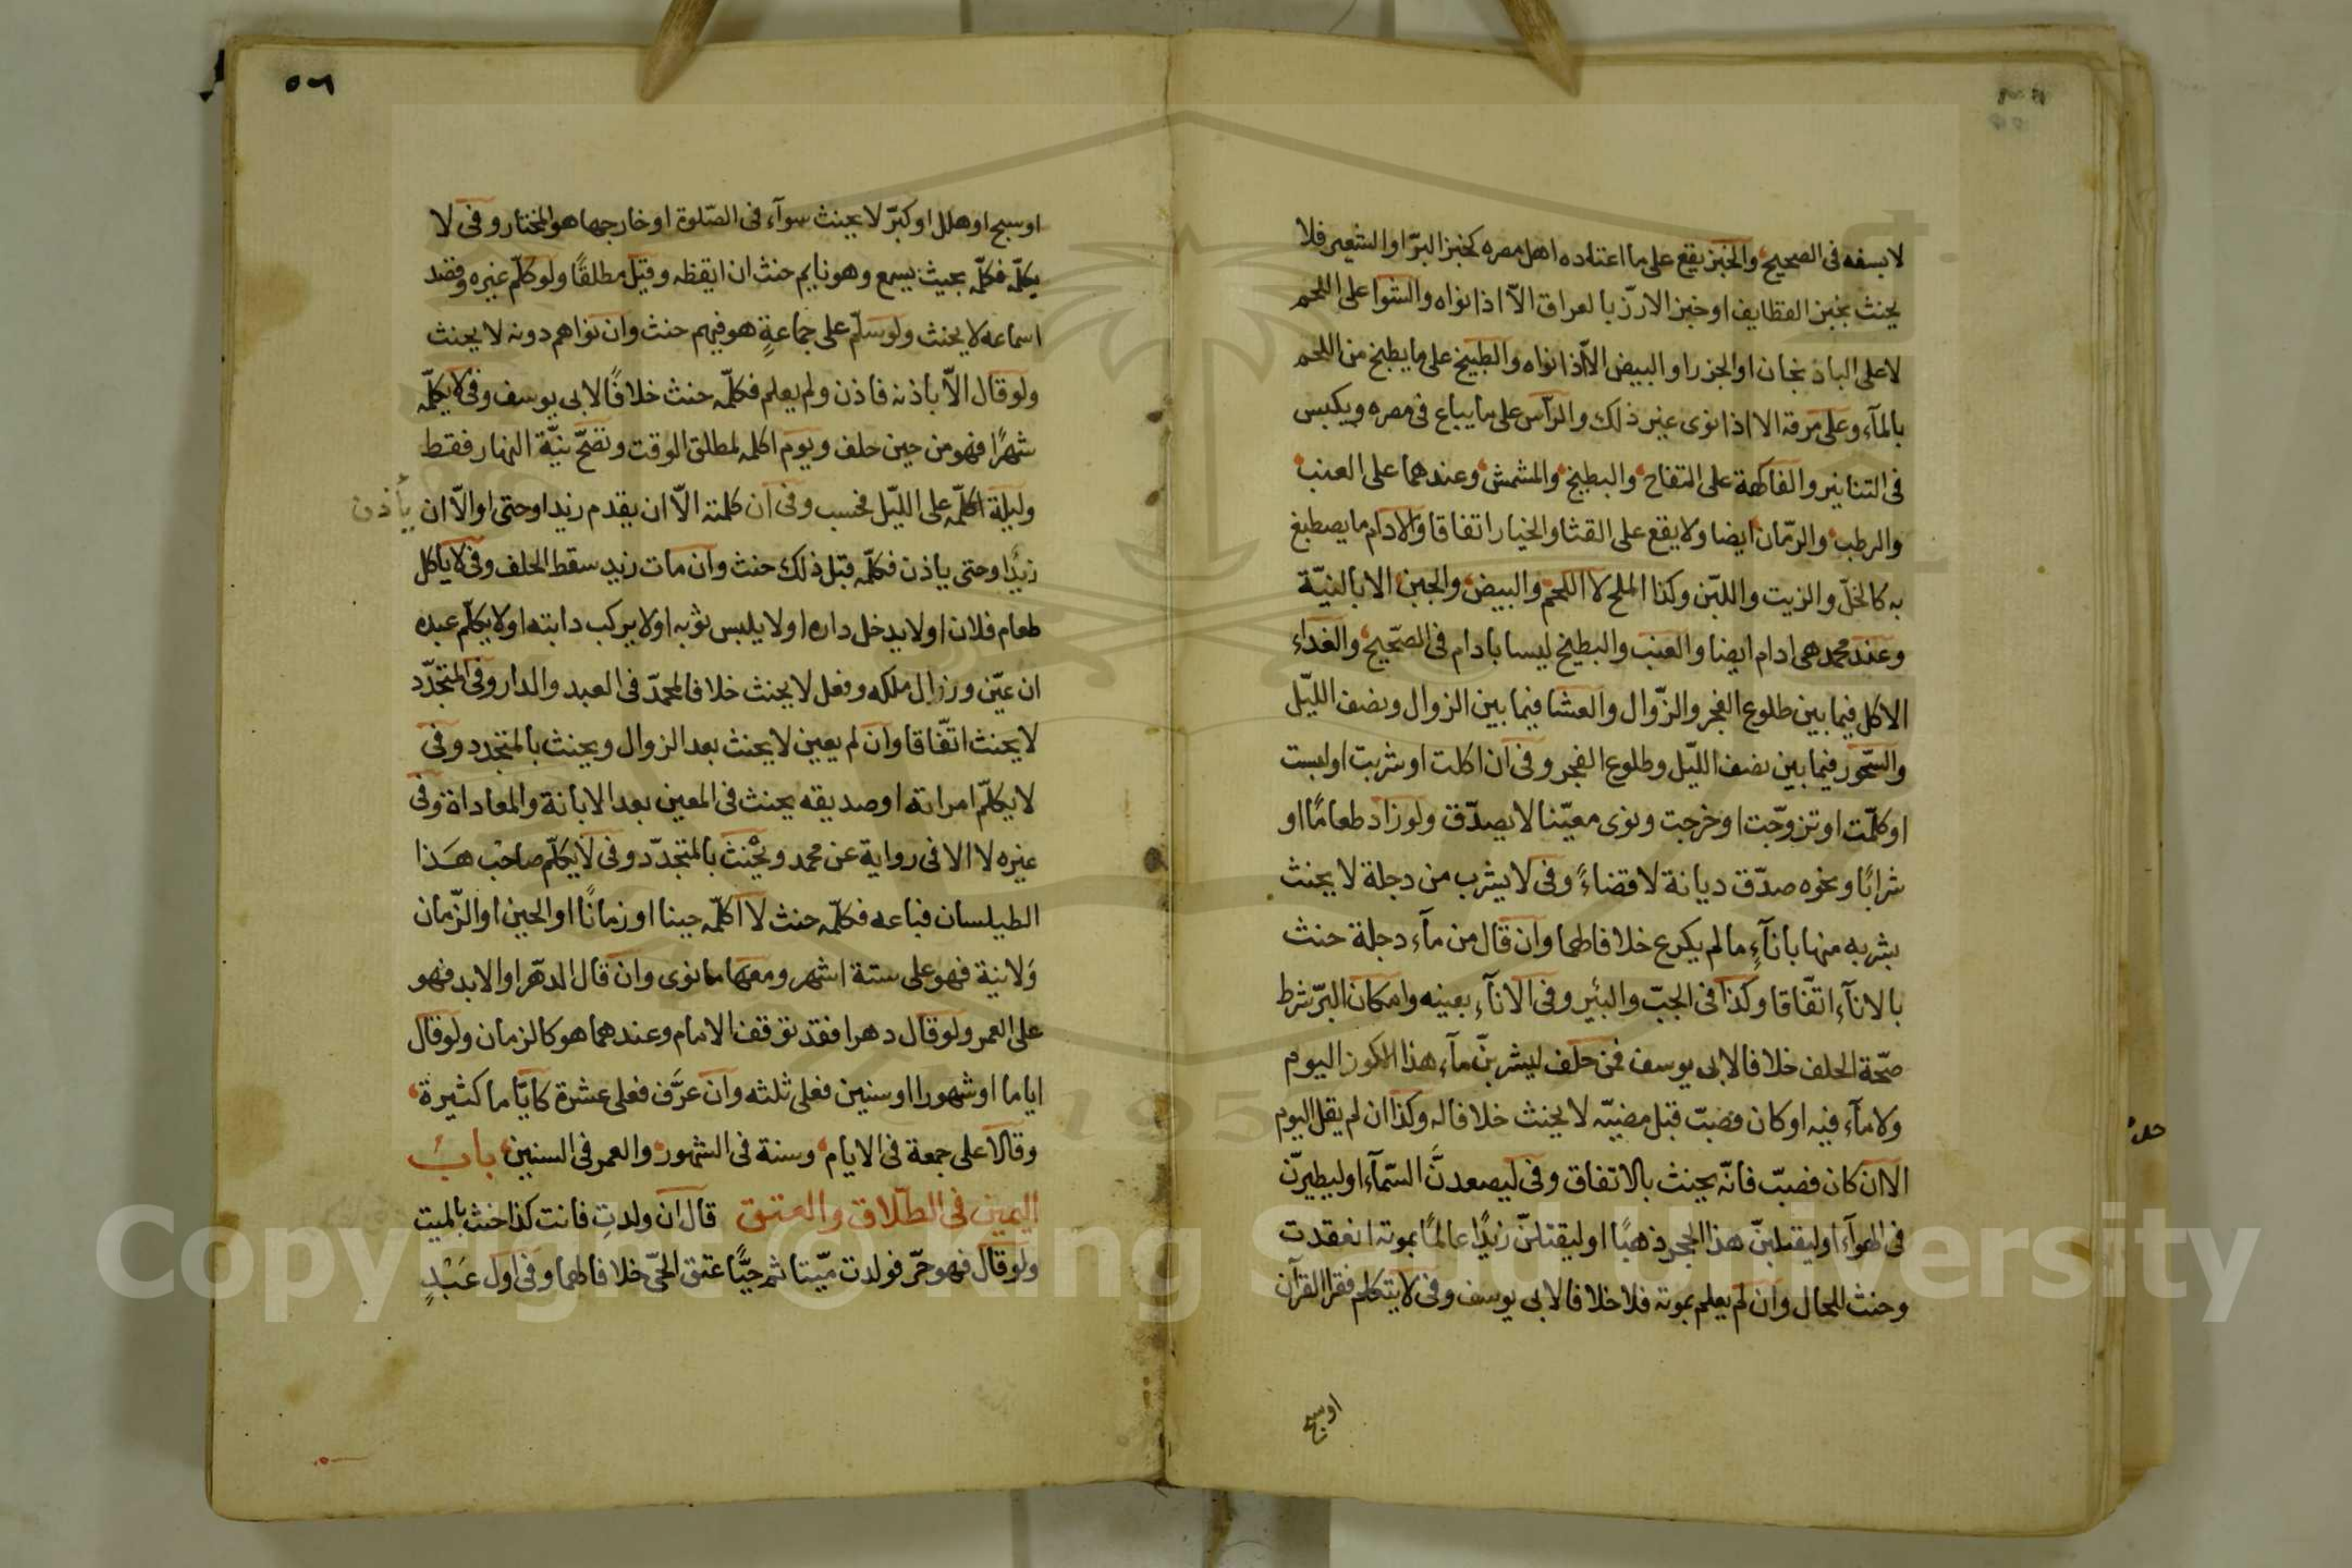 لا بسفه فى الصحيح والخبز يقع على ما اعتاده اهل مصره كخبز البرّ او الشعير فلا
يحنث بخبز القطايف او خبز الارزّ بالعراق الاّ اذا نواه والشوا على اللحم
لا على الباذنجان او الجزر او البيض الاّ اذا نواه والطبيخ على ما يطبخ من اللحم
بالمآء وعلى مرقة الا اذا نوى غير ذلك والرأس على ما يباع فى مصره ويكبس
فى التنانير والفاكهة على التفاح والبطيخ والمشمش وعندهما على العنب
والرطب والرّمان ايضا ولا يقع على القثا والخيار اتفاقا والادام ما يصطبغ
به كالخلّ والزيت واللبّن وكذا الملح لا اللحم والبيض والجبن الا بالنيّة
وعند محمد هى ادام ايضا والعنب والبطيخ ليسا بادام فى الصّحيح والغداء
الاكل فيما بين طلوع الفجر والزّوال والعشا فيما بين الزوال ونصف اللّيل
والسّحور فيما بين نصف اللّيل وطلوع الفجر وفى ان اكلت او شربت او لبست
او كلّمت او تزوّجت او خرجت ونوى معيّنا لا يصدّق ولو زاد طعامًا او
شرابًا ونحوه صدّق ديانة لا قضاءً وفى لا يشرب من دجلة لا يحنث
بشربه منها بانآءٍ ما لم يكرع خلافا لهما وان قال من مآء دجلة حنث
بالانآء اتّفاقا وكذا فى الجبّ والبئير وفى الانآء بعينه وامكان البرّ شرط
صحّة الحلف خلافا لابى يوسف فمن حلف ليشربنّ مآء هذا الكوز اليوم
ولا مآء فيه او كان فصبّ قبل مضيّه لا يحنث خلافا له وكذا ان لم يقل اليوم
الا ان كان فصبّ فانّه يحنث بالاتفاق وفى ليصعدنَّ السّمآء او ليطيرنّ
فى الهوآء او ليقلبنّ هذا الحجر ذهبًا او ليقتلنّ زيدًا عالمًا بموته انعقدت
وحنث للحال وان لم يعلم بموته فلا خلافا لابى يوسف وفى لا يتكلم فقرا القرآن
او سبح
او سبح او هلل او كبّر لا يحنث سوآء فى الصّلوة او خارجها هو المختار وفى لا
يكلّمه فكلّمه بحيث يسمع وهو نايم حنث ان ايقظه وقيل مطلقًا ولو كلّم غيره وقصد
اسماعه لا يحنث ولو سلّم على جماعةٍ هو فيهم حنث وان نواهم دونه لا يحنث
ولو قال الاّ باذنه فاذن ولم يعلم فكلّمه حنث خلافًا لابى يوسف وفى لا يكلّمه
شهرًا فهو من حين حلف ويوم اكلمه لمطلق الوقت وتصحّ نيّة النهار فقط
وليلة اكلّمه على اللّيل فحسب وفى ان كلمته الاّ ان يقدم زيد او حتى او الاّ ان يأذن
زيدًا وحتى ياذن فكلّمه قبل ذلك حنث وان مات زيد سقط الحلف وفى لا ياكل
طعام فلان او لا يدخل داره او لا يلبس ثوبه او لا يركب دابته او لا يكلّم عبده
ان عيّن وزال ملكه وفعل لا يحنث خلافا لمحمدّ فى العبد والدار وفى المتجدّد
لا يحنث اتّفاقا وان لم يعين لا يحنث بعد الزوال ويحنث بالمتجدد وفى
لا يكلّم امراته او صديقه يحنث فى المعين بعد الابانة والمعاداة وفى
غيره لا الا فى رواية عن محمد ويحْنث بالمتجدّد وفى لا يكلّم صاحب هَذا
الطيلسان فباعه فكلّمه حنث لا اكلّمه حينا او زمانًا او الحين او الزّمان
وَلا نية فهو على ستة اشهر ومعها ما نوى وان قال الدهر او الابد فهو
على العمر ولو قال دهرا فقد توقف الامام وعندهما هو كالزمان ولو قال
اياما او شهورا او سنين فعلى ثلثه وان عرَّف فعلى عشرة كايّاما كثيرة
وقالا على جمعة فى الايام وسنة فى الشهور والعمر فى السنين باب
اليمين فى الطّلاق والعتق قال ان ولدتِ فانت كذا حنث بالميت
ولو قال فهو حرّ فولدت ميّتا ثم حيًّا عتق الحّى خلافا لهما وفى اول عَبْدٍ
Copyright © King Saud University